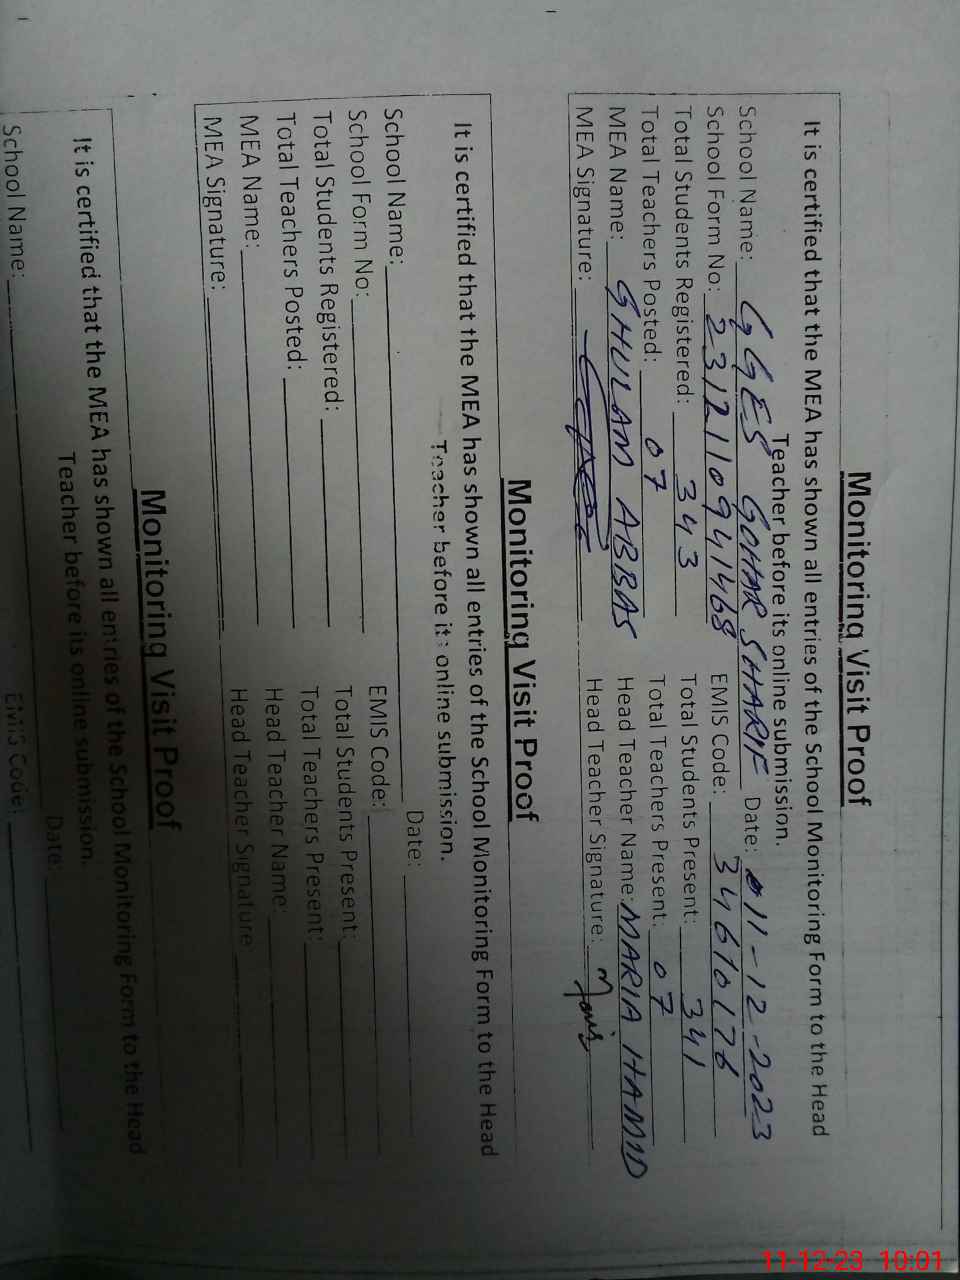 Monitoring Visit Proof
It is certified that the MEA has shown all entries of the School Monitoring Form to the Head
Teacher before its online submission.
School Name: GGES GOHAR SHARIF Date: 11-12-2023
School Form No: 2312110941468 EMIS Code: 34610176
Total Students Registered: 343 Total Students Present: 341
Total Teachers Posted: 07 Total Teachers Present: 07
MEA Name: GHULAM ABBAS Head Teacher Name: MARIA HAMID
MEA Signature: Head Teacher Signature:
Monitoring Visit Proof
It is certified that the MEA has shown all entries of the School Monitoring Form to the Head
Teacher before its online submission.
School Name: Date:
School Form No: EMIS Code:
Total Students Registered: Total Students Present:
Total Teachers Posted: Total Teachers Present:
MEA Name: Head Teacher Name:
MEA Signature: Head Teacher Signature
Monitoring Visit Proof
It is certified that the MEA has shown all entries of the School Monitoring Form to the Head
Teacher before its online submission.
Date:
School Name: EMIS Code:
11-12-23 10:01